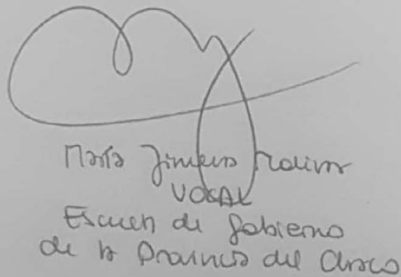 María Jimena Molina
VOCAL
Escuela de Gobierno
de la Provincia del Chaco